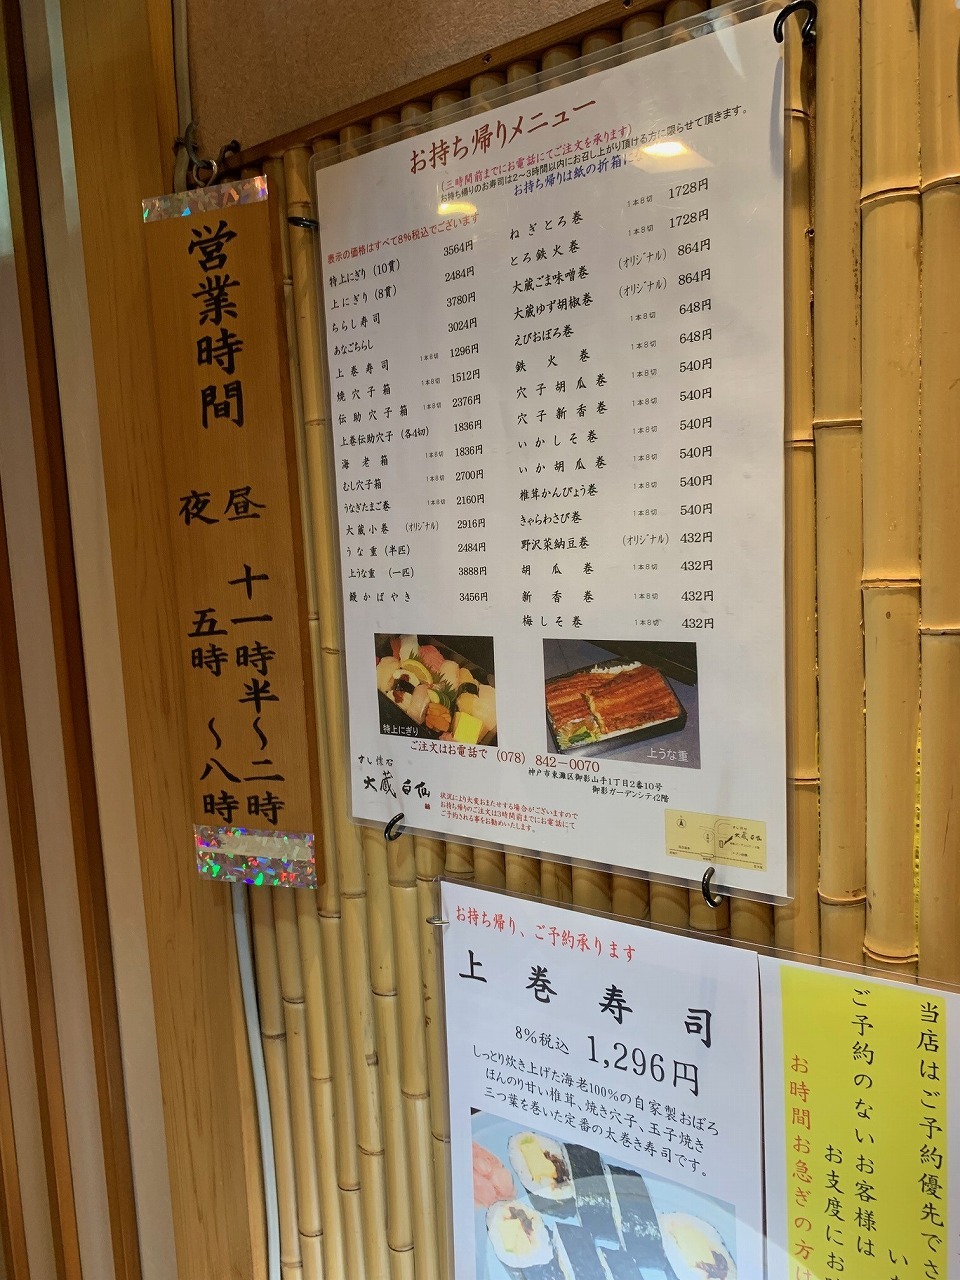 営業時間
昼 十一時半〜二時
夜 五時 〜八時
お持ち帰りメニュー
(三時間前までにお電話にてご注文を承ります)
お持ち帰りのお寿司は2〜3時間以内にお召し上がり頂ける方に限らせて頂きます。
お持ち帰りは紙の折箱に
表示の価格はすべて8%税込でございます
特上にぎり (10貫) 3564円
上にぎり (8貫) 2484円
ちらし寿司 3780円
あなごちらし 3024円
上巻寿司 1本8切 1296円
焼穴子箱 1本8切 1512円
伝助穴子箱 1本8切 2376円
上巻伝助穴子 (各4切) 1836円
海老箱 1本8切 1836円
むし穴子箱 2700円
うなぎたまご巻 1本8切 2160円
大蔵小巻 (オリジナル) 2916円
うな重 (半匹) 2484円
上うな重 (一匹) 3888円
鰻かばやき 3456円
ねぎとろ巻 1本8切 1728円
とろ鉄火巻 1本8切 1728円
大蔵ごま味噌巻 (オリジナル) 864円
大蔵ゆず胡椒巻 (オリジナル) 864円
えびおぼろ巻 1本8切 648円
鉄火巻 1本8切 648円
穴子胡瓜巻 1本8切 540円
穴子新香巻 1本8切 540円
いかしそ巻 1本8切 540円
いか胡瓜巻 1本8切 540円
椎茸かんぴょう巻 1本8切 540円
きゃらわさび巻 1本8切 540円
野沢菜納豆巻 (オリジナル) 432円
胡瓜巻 1本8切 432円
新香巻 1本8切 432円
梅しそ巻 1本8切 432円
特上にぎり
上うな重
ご注文はお電話で (078) 842−0070
神戸市東灘区御影山手1丁目2番10号
御影ガーデンシティ2階
すし懐石
大蔵
状況により大変おまたせする場合がございますので
お持ち帰りのご注文は3時間前までにお電話にて
ご予約される事をお勧めいたします。
お持ち帰り、ご予約承ります
上巻寿司
8%税込 1,296円
しっとり炊き上げた海老100%の自家製おぼろ
ほんのり甘い椎茸、焼き穴子、玉子焼き
三つ葉を巻いた定番の太巻き寿司です。
当店はご予約優先でさ
ご予約のないお客様は
お支度にお
お時間お急ぎの方は